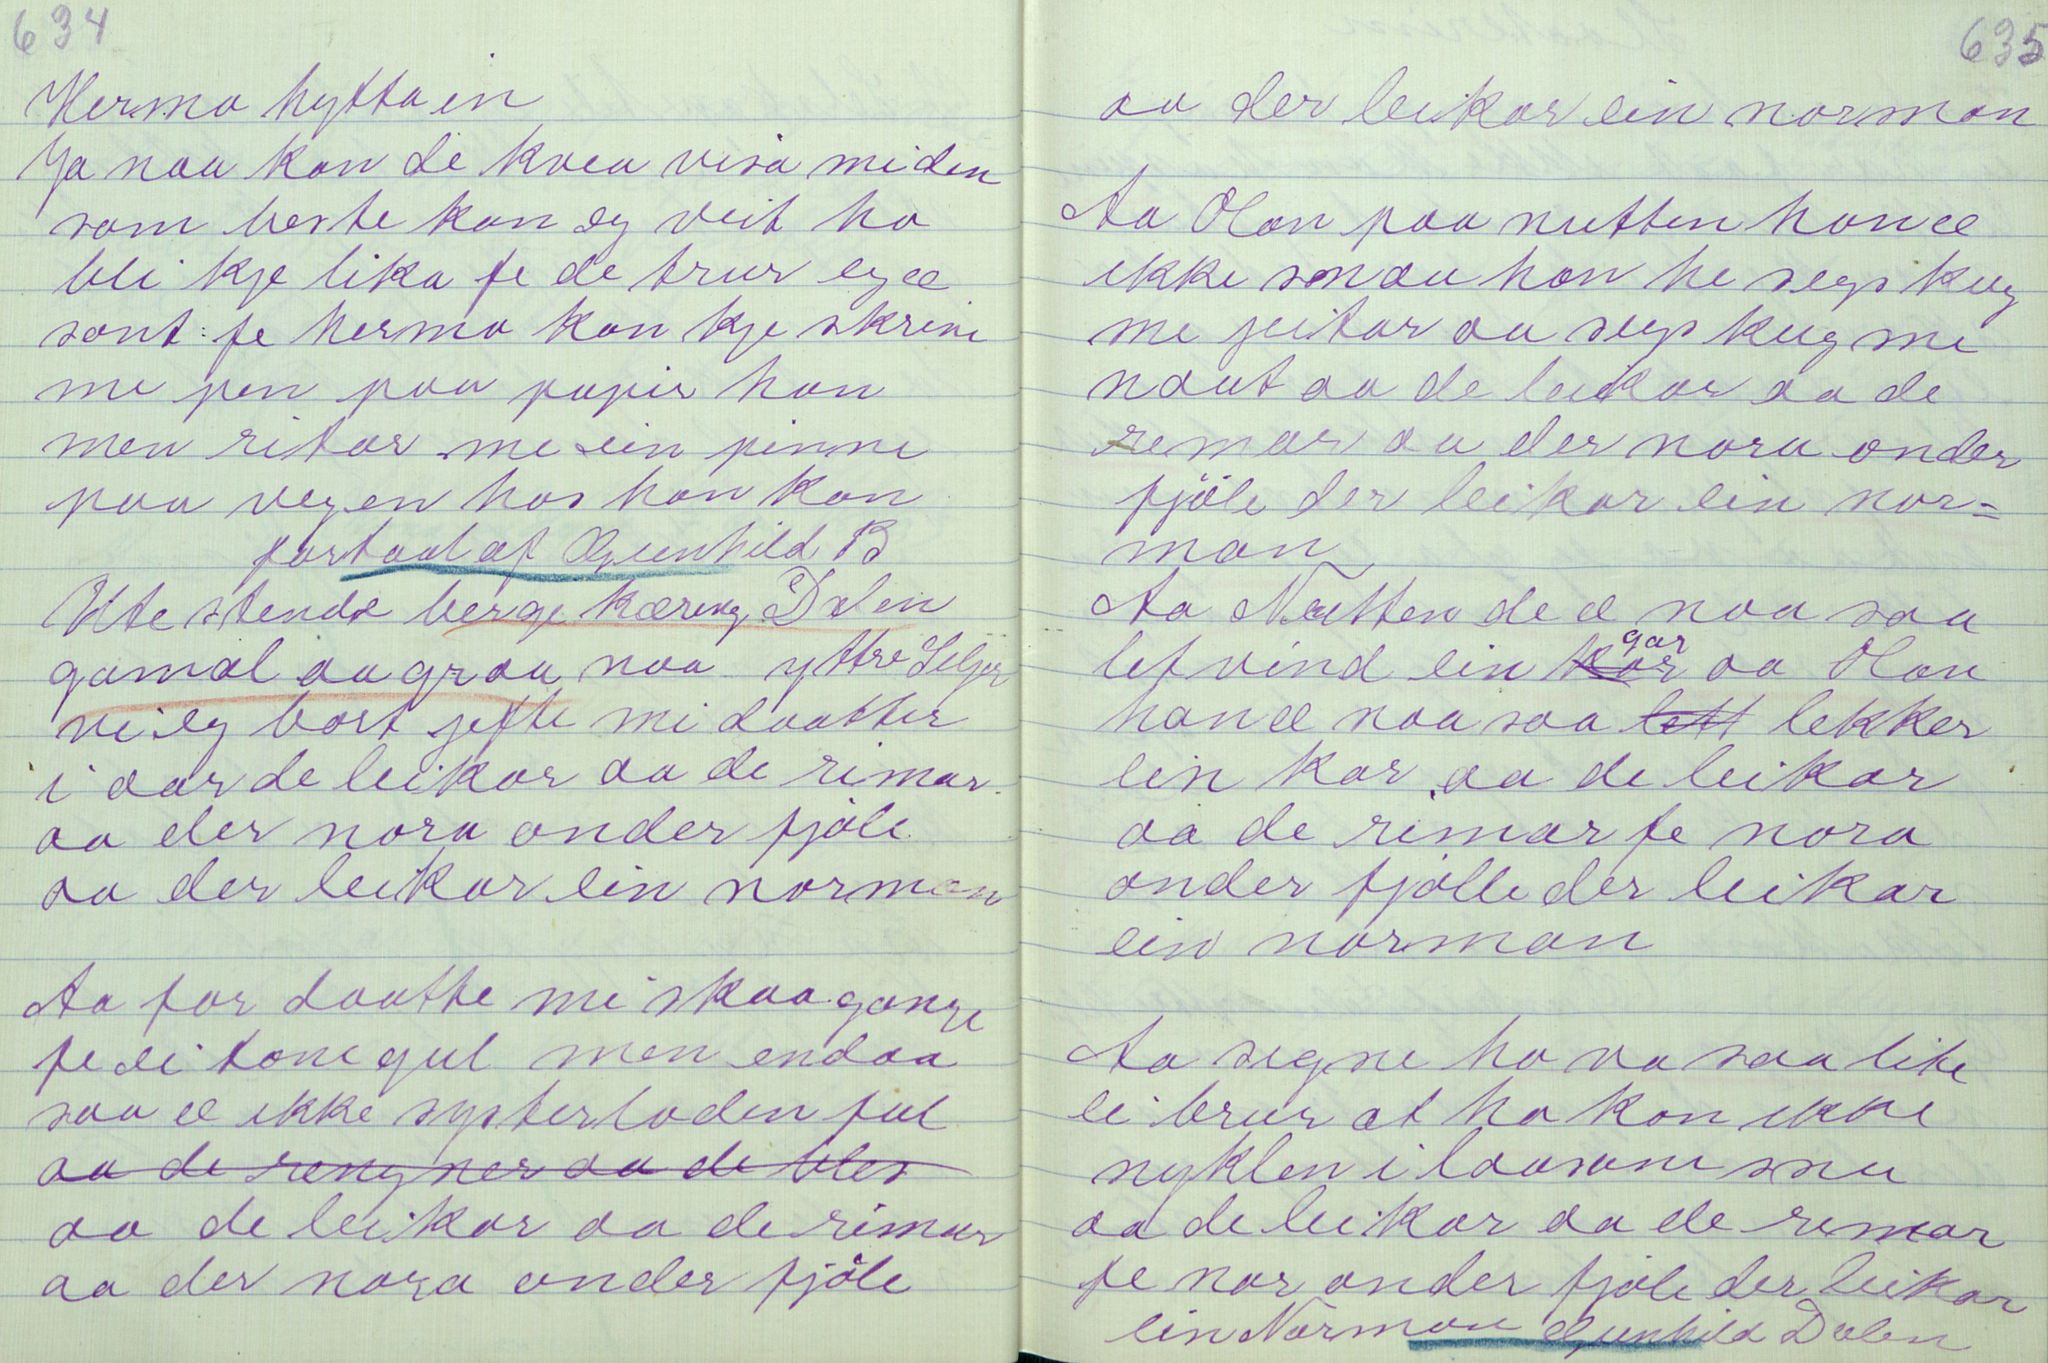 634
Herma hyttain
Ja naa kan de koea visa mi den
som beste kan eg veit ho
bli kje lika fe de trur eg æ
sant: fe herma kan kje skrive
me pen paa papir han
men ritar me ein pinne
paa vegen has han kan
fortaal af Gunhild B
Ute stende berge kæreng Dalen
gamal aa graa naa yttre Seljor
vi eg bort jefte mi daatter
i aar de leikar aa de rimar
aa der nora onder fjöle
aa der leikar ein norman
Aa for daatte mi skaa gange
fe ei tone gul men endaa
saa æ ikke systerloden ful
aa de rengner aa de bles
aa de leikar aa de rimar
aa der nora onder fjöle
635
aa der leikar ein norman
Aa Olan paa nutten han æ
ikke snau han he seys kug
me jeitar aa seys kug me
naut aa de leikar aa de
remar aa der nora onder
fjöle der leikar ein nor=
man
Aa Nutten de æ naa saa
letvind ein kar gar aa Olan
han æ naa saa lett lekker
ein kar aa de leikar
aa de rimar fe nora
onder fjölle der leikar
ein norman
Aa segne ho va saa like
ei brur at ho kan ikke
nyklen i laasane snu
aa de leikar aa de remar
fe nor onder fjöle der leikar
ein Norman Gunhild Dalen